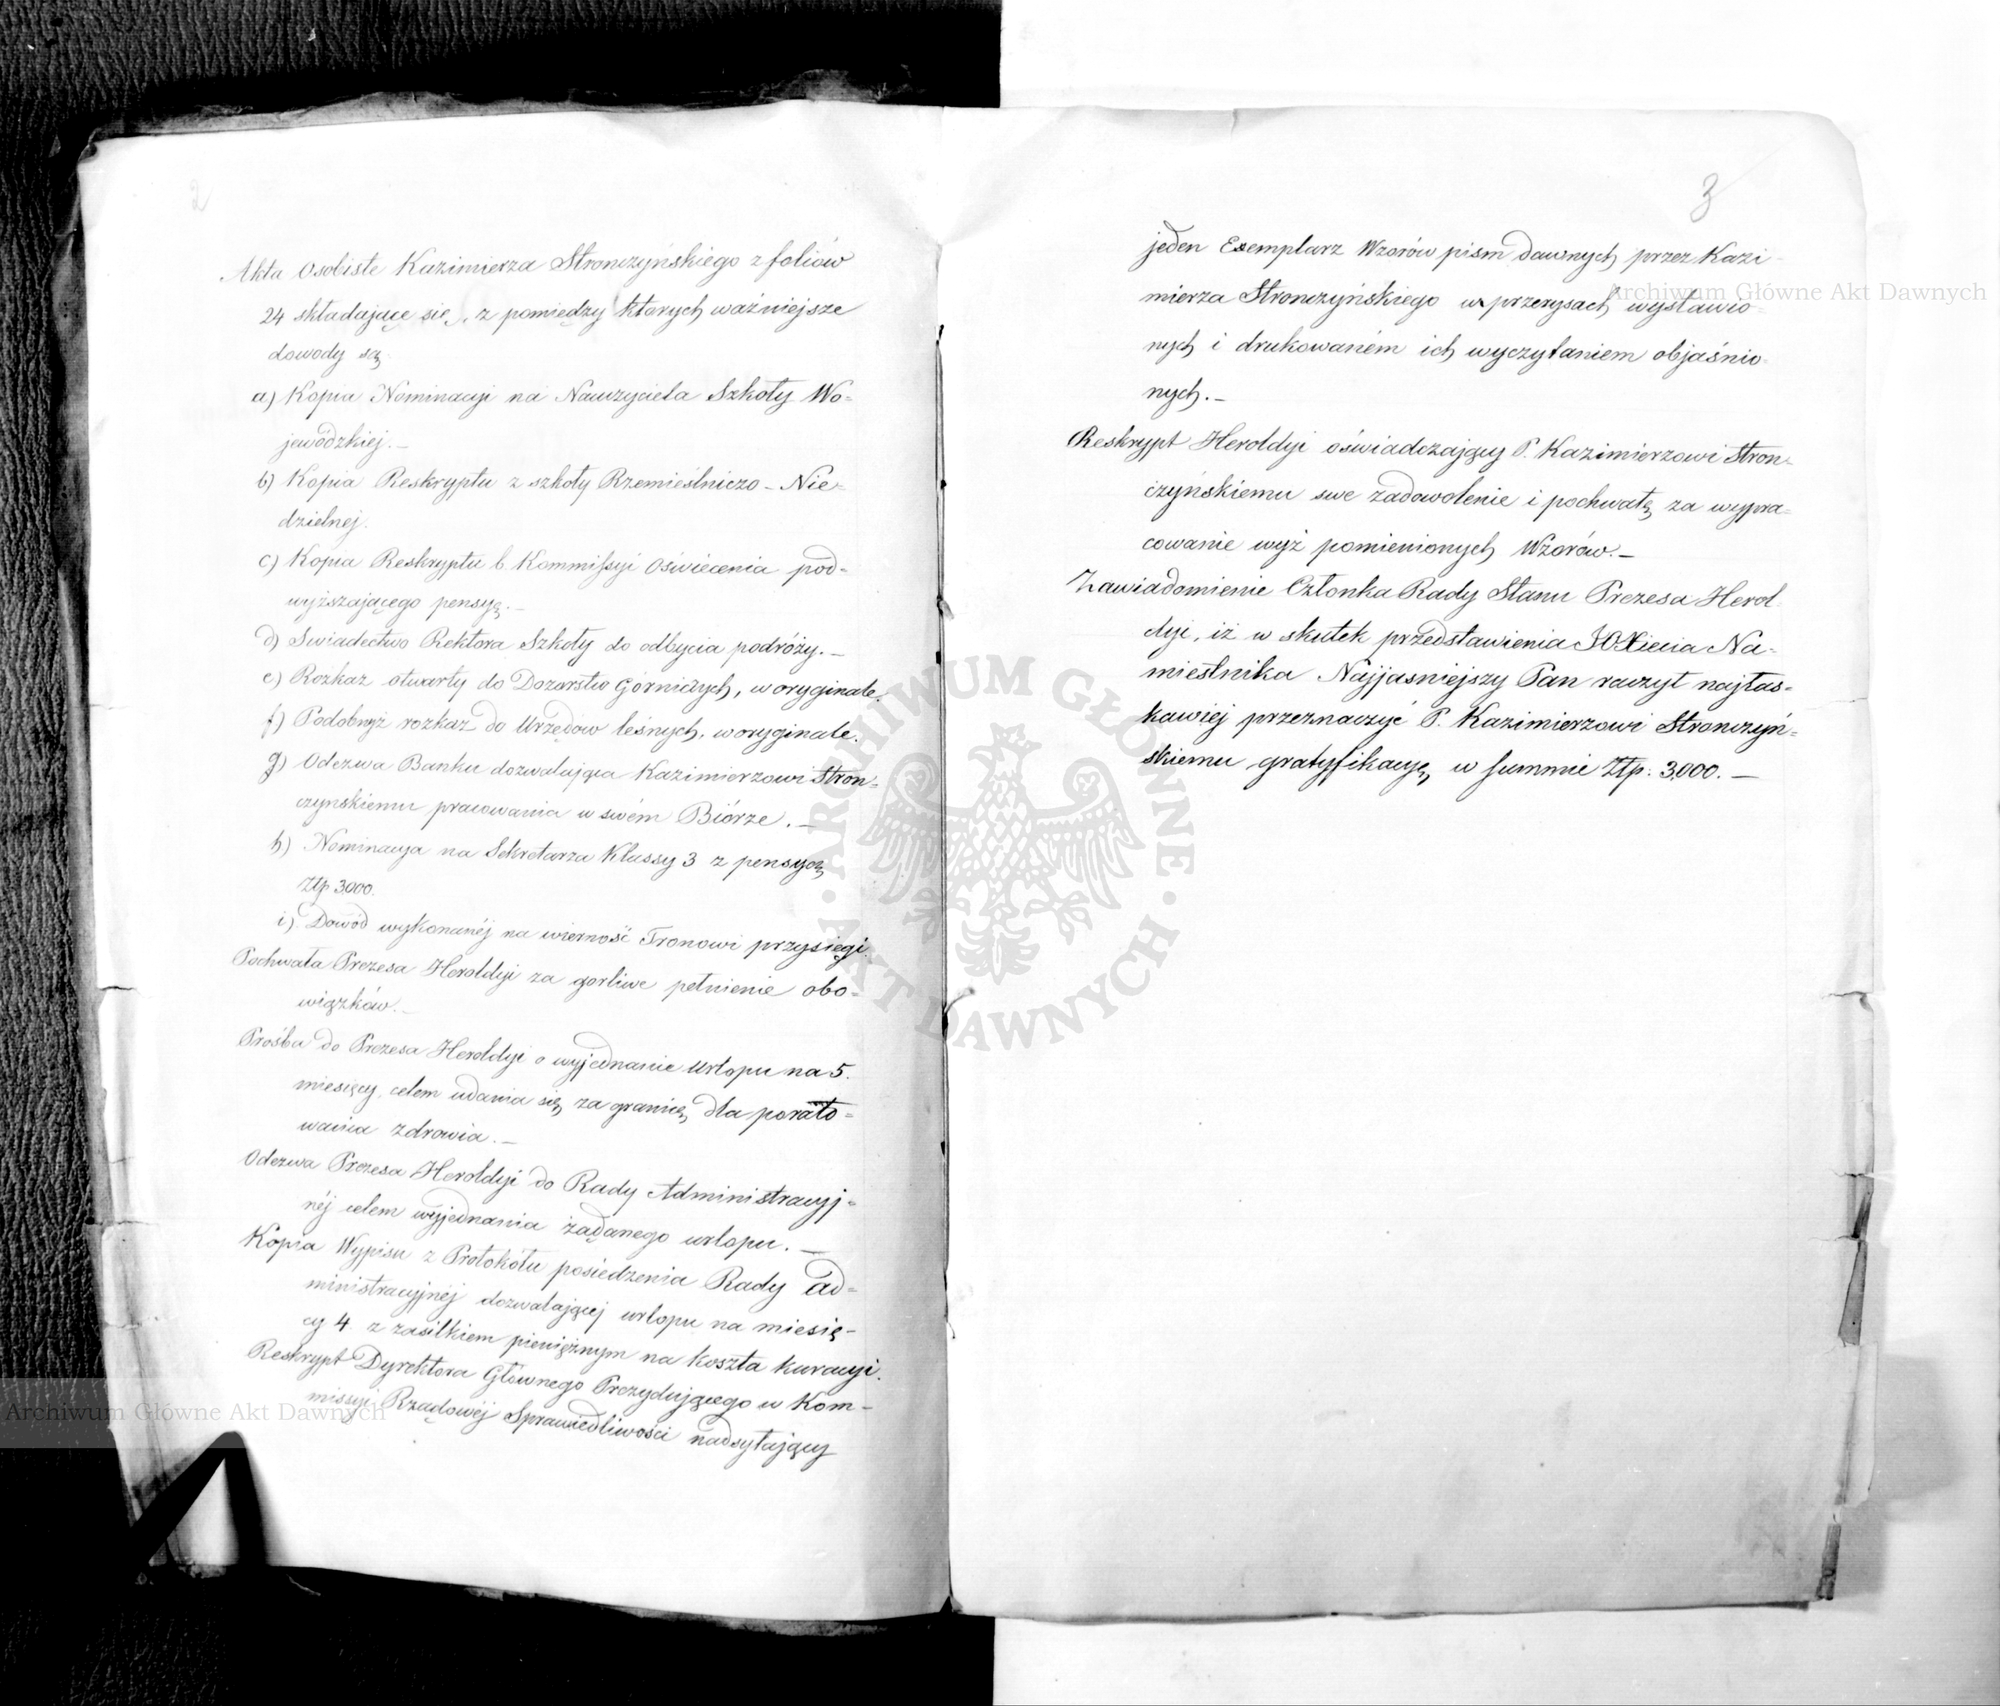 2
Akta Osobiste Kazimierza Stronczyńskiego z foliów
24 składające się, z pomiędzy których ważniejsze
dowody są
a) Kopia Nominacyi na Nauczyciela Szkoły Wo=
jewódzkiej.—
b) Kopia Reskryptu z szkoły Rzemieślniczo-Nie=
dzielnej.
c) Kopia Reskryptu b. Kommissyi Oświecenia pod=
wyższającego pensyę.—
d) Swiadectwo Rektora Szkoły do odbycia podróży.—
e) Rozkaz otwarty do Dozorstw Górniczych, w oryginale.
f) Podobnyż rozkaz do Urzędów leśnych, w oryginale.
g) Odezwa Banku dozwalająca Kazimierzowi Stron=
czynskiemu pracowania w swém Biórze.—
h) Nominacya na Sekretarza Klassy 3 z pensyą
Złp 3000.
i) Dowód wykonanéj na wierność Tronowi przysięgi.
Pochwała Prezesa Heroldyi za gorliwe pełnienie obo=
wiązków.—
Prośba do Prezesa Heroldyi o wyjednanie urlopu na 5.
miesięcy, celem udania się za granicę dla porato=
wania zdrowia.—
Odezwa Prezesa Heroldyi do Rady Administracyj=
néj celem wyjednania żądanego urlopu.—
Kopia Wypisu z Protokółu posiedzenia Rady Ad=
ministracyjnéj dozwalającej urlopu na miesię=
cy 4. z zasiłkiem pieniężnym na koszta kuracyi.
Reskrypt Dyrektora Głównego Prezydującego w Kom=
missyi Rządowéj Sprawiedliwości nadsyłający
3
jeden Exemplarz Wzorów pism dawnych przez Kazi=
mierza Stronczyńskiego w przerysach wystawio=
nych i drukowaném ich wyczytaniem objaśnio=
nych.—
Reskrypt Heroldyi oświadczający P. Kazimierzowi Stron=
czyńskiemu swe zadowolenie i pochwałę za wypra=
cowanie wyż pomienionych Wzorów.—
Zawiadomienie Członka Rady Stanu Prezesa Herol=
dyi, iż w skutek przedstawienia JO Xięcia Na=
miestnika Najjasniejszy Pan raczył najłas=
kawiéj przeznaczyć P. Kazimierzowi Stronczyń=
skiemu gratyfikacyę w summie Złp: 3,000.—
Archiwum Główne Akt Dawnych
ARCHIWUM GŁÓWNE · AKT DAWNYCH ·
Archiwum Główne Akt Dawnych